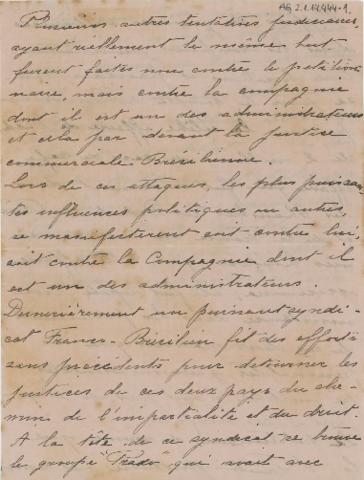 AG 2.1.14.444-1.
Plusieurs autres tentatives judiciaires,
ayant réellement le même but
furent faites non contre le petition-
naire, mais contre la compagnie
dont il est un des administrateurs
et cela par devant la justice
commerciale Brésilienne.
Lors de ces attaques, les plus puissan-
tes influences politiques ou autres,
se manifesterent soit contre lui,
soit contre la Compagnie dont il
est un des administrateurs.
Dernièrement un puissant syndi-
cat Franco-Brésilien fit des efforts
sans précédents pour detourner les
justices de ces deux pays du che-
min de l'impartialité et du droit.
A la tête de ce syndicat se trouve
le groupe "Prado" qui avait avec